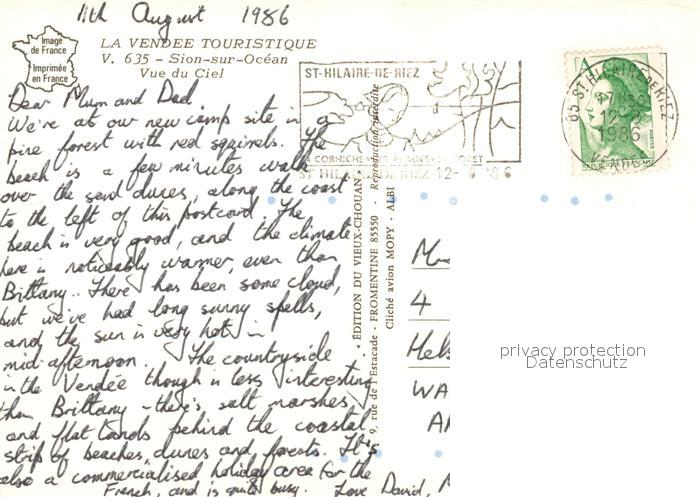 11th August 1986
Image
de France
Imprimée
en France
LA VENDEE TOURISTIQUE
V. 635 - Sion-sur-Océan
Vue du Ciel
Dear Mum and Dad,
We're at our new camp site in a
pine forest with red squirrels. The
beach is a few minutes walk
over the sand dunes, along the coast
to the left of this postcard. The
beach is very good, and the climate
here is noticeably warmer, even than
Brittany. There has been some cloud,
but we've had long sunny spells,
and the sun is very hot in
mid-afternoon. The countryside
in the Vendée though is less interesting
than Brittany - there's salt marshes
and flat lands behind the coastal
strip of beaches, dunes and forests. It's
also a commercialised holiday area for the
French, and is quite busy. Love David, M
ST-HILAIRE-DE-RIEZ
LA CORNICHE PLAGES FORET
ST HILAIRE DE RIEZ 12- 86
85 ST HILAIRE DE RIEZ
12-
1986
A
POSTES
REPUBLIQUE FRANÇAISE
ÉDITION DU VIEUX-CHOUAN
9, rue de l'Estacade - FROMENTINE 85550 - Reproduction interdite
Cliché avion MOPY - ALBI
M
4
Hel
WA
A
privacy protection
Datenschutz